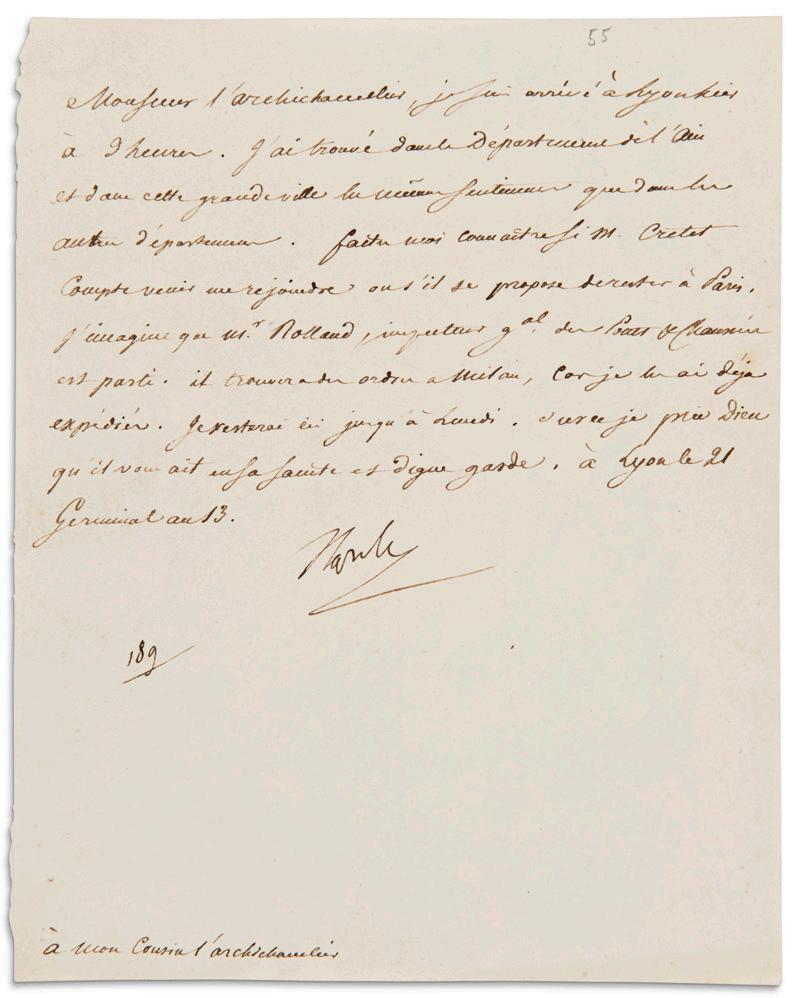 55
Monsieur l'archichancelier, je suis arrivé à Lyon hier
à 9 heures. J'ai trouvé dans le Département de l'Ain
et dans cette grande ville les mêmes sentimens que dans les
autres départemens. faites moi connaître si M. Cretet
Compte venir me rejoindre ou s'il se propose de rester à Paris.
J'imagine que Mr. Rolland, inspecteur gal. des Ponts & Chaussées
est parti. il trouvera des ordres a Milan, Car je les ai déja
expédiés. Je resterai ici jusqu'à Lundi. Sur ce je prie Dieu
qu'il vous ait en sa sainte et digne garde. à Lyon le 21
Germinal an 13.
189
à Mon Cousin l'archichancelier